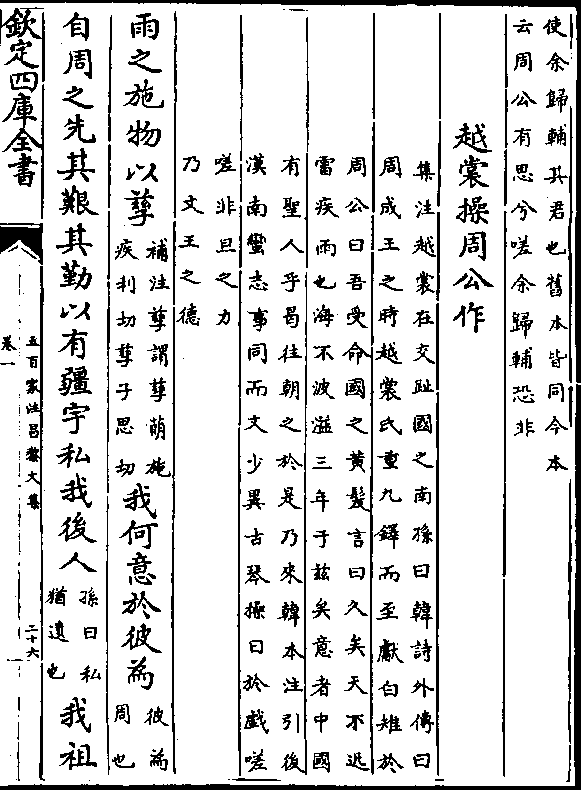 使余歸輔其君也舊本皆同今本
云周公有思兮嗟余歸輔恐非
越裳操周公作
集注越裳在交趾國之南孫曰韓詩外傳曰
周成王之時越裳氏重九鐸而至獻白雉於
周公曰吾受命國之黄髮言曰久矣天不迅
雷疾雨也海不波溢三年于兹矣意者中國
有聖人乎曷往朝之於是乃來韓本注引後
漢南蠻志事同而文少異古琴操曰於戲嗟
嗟非旦之力
乃文王之德
雨之施物以孳補注孳謂孳萌施
疾利切孳子思切我何意於彼為彼為
周也
自周之先其艱其勤以有疆宇私我後人孫曰私
猶遺也我祖
欽定四庫全書
五百家注昌黎文集
卷一
二十六